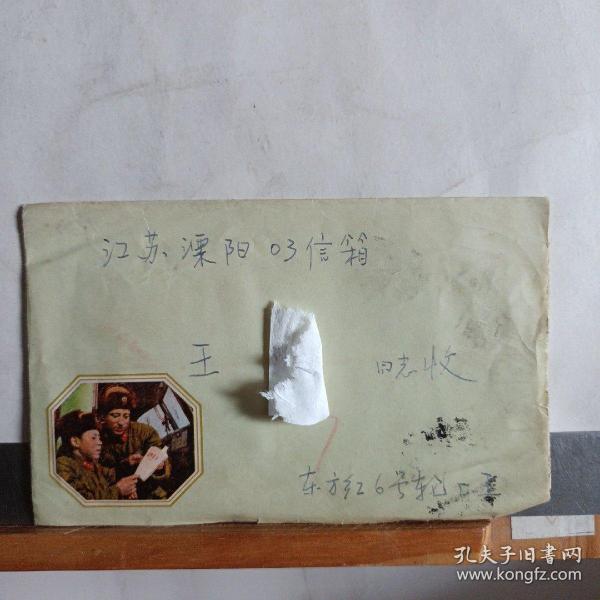 江苏溧阳03信箱
王 同志收
东方红6号轮
孔夫子旧书网
www.kongfz.com